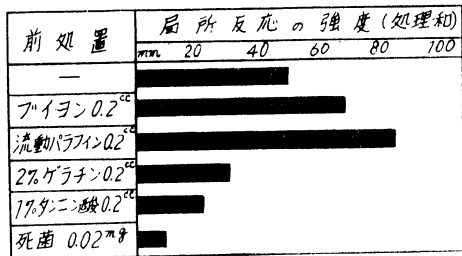 前処置 局所反応の強度(処理和)
mm 20 40 60 80 100
—
ブイヨン0.2cc
流動パラフィン0.2cc
2%ゲラチン0.2cc
1%タンニン酸0.2cc
死菌 0.02mg